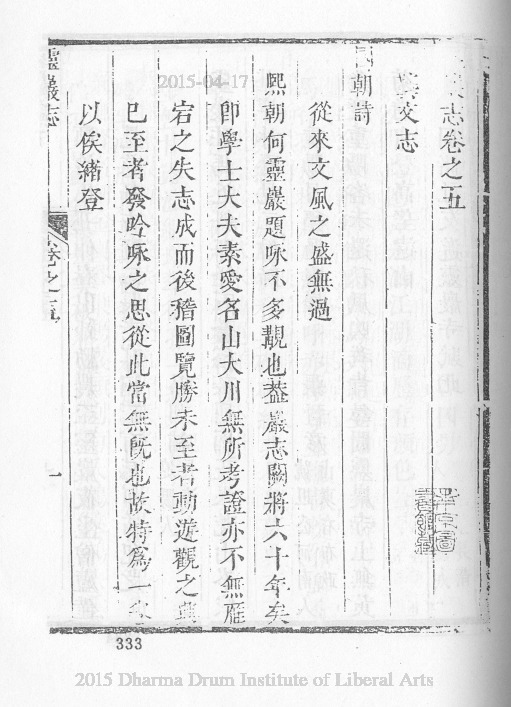 志卷之五
文志
朝詩
從來文風之盛無過
熈朝何靈巖題咏不多覯也葢巖志闕將六十年矣
卽學士大夫素愛名山大川無所考證亦不無雁
宕之失志成而後稽圖覽勝未至者動遊觀之
已至者發吟咏之思從此當無旣也故特爲一
以俟續登
靈巖志
卷之五
一
333
2015-04-17
2015 Dharma Drum Institute of Liberal Arts